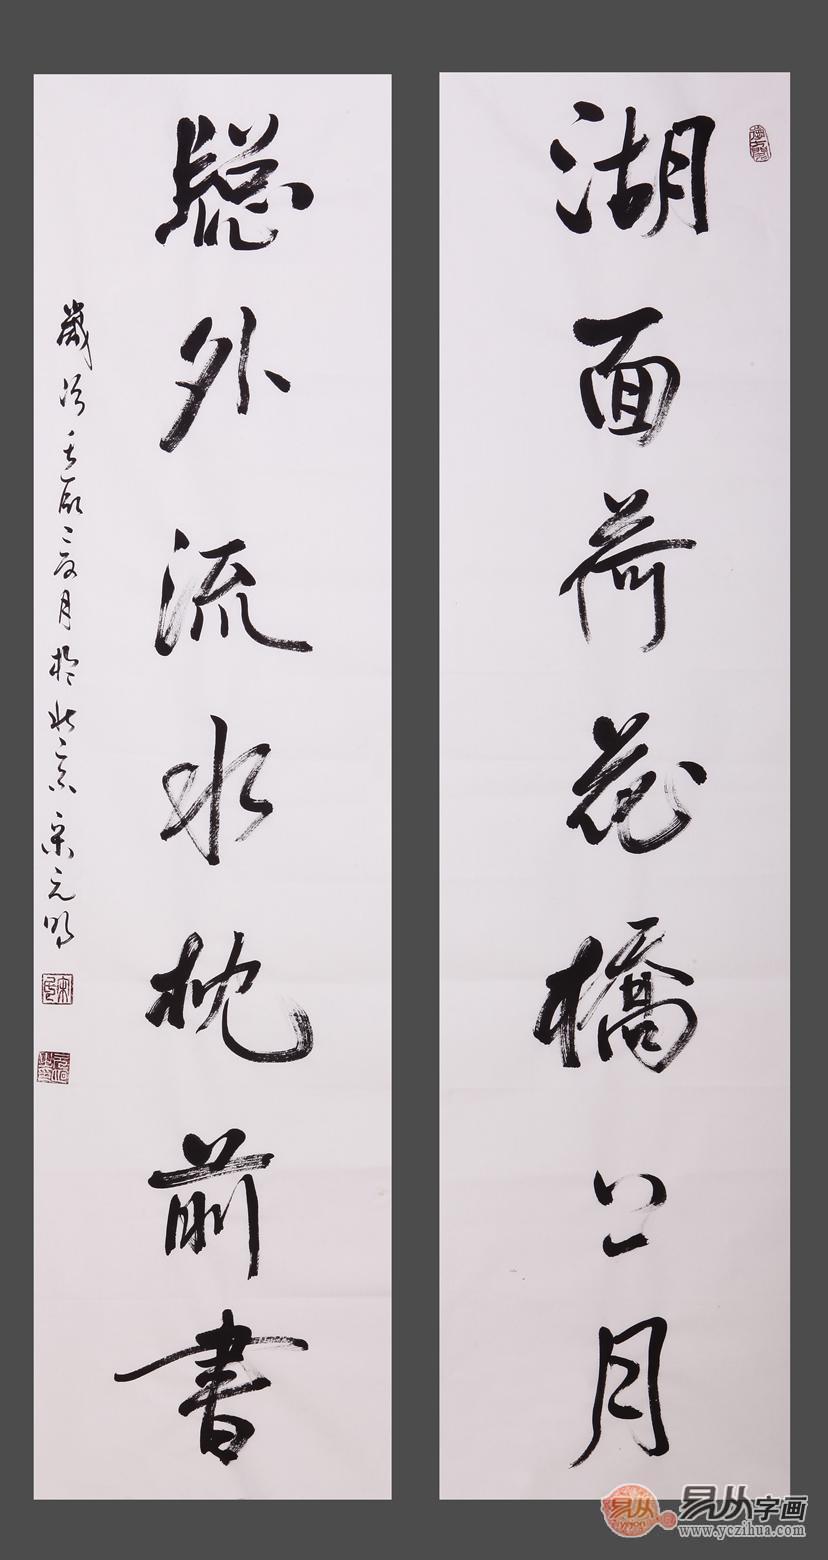 湖面荷花橋上月
牕外流水枕前書
歲次壬辰之夏月於北京宋元明
易从
易从字画
www.yczihua.com